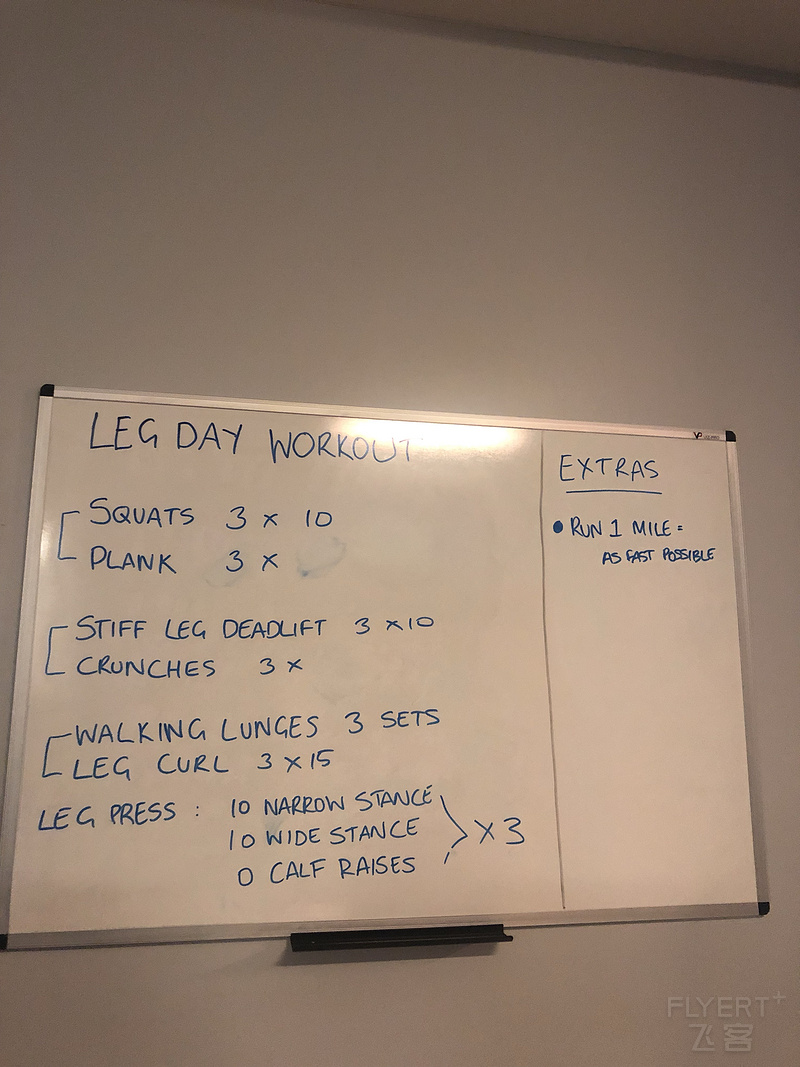 LEG DAY WORKOUT
SQUATS 3 x 10
PLANK 3 x
STIFF LEG DEADLIFT 3 x 10
CRUNCHES 3 x
WALKING LUNGES 3 SETS
LEG CURL 3 x 15
LEG PRESS : 10 NARROW STANCE
10 WIDE STANCE
0 CALF RAISES
x 3
VP
EXTRAS
• RUN 1 MILE =
AS FAST POSSIBLE
FLYERT+
飞客